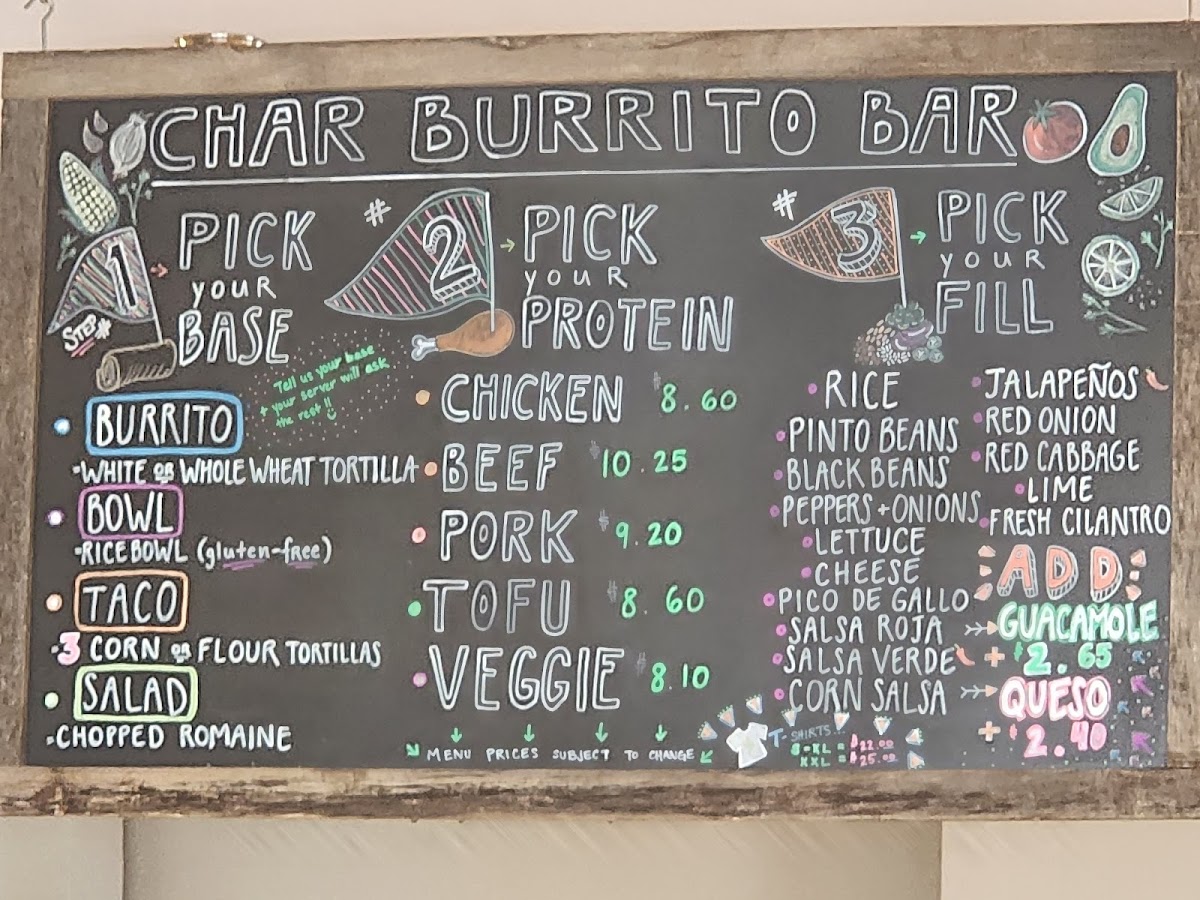 CHAR BURRITO BAR
STEP #1 → PICK
YOUR
BASE
Tell us your base
+ your server will ask
the rest!!
BURRITO
-WHITE OR WHOLE WHEAT TORTILLA
BOWL
-RICE BOWL (gluten-free)
TACO
-3 CORN OR FLOUR TORTILLAS
SALAD
-CHOPPED ROMAINE
#2 → PICK
YOUR
PROTEIN
CHICKEN $8.60
BEEF $10.25
PORK $9.20
TOFU $8.60
VEGGIE $8.10
MENU PRICES SUBJECT TO CHANGE
#3 → PICK
YOUR
FILL
RICE
PINTO BEANS
BLACK BEANS
PEPPERS + ONIONS
LETTUCE
CHEESE
PICO DE GALLO
SALSA ROJA
SALSA VERDE
CORN SALSA
JALAPEÑOS
RED ONION
RED CABBAGE
LIME
FRESH CILANTRO
ADD
GUACAMOLE
+ $2.65
QUESO
+ $2.40
T-SHIRTS...
S-XL = $22.00
XXL = $25.00